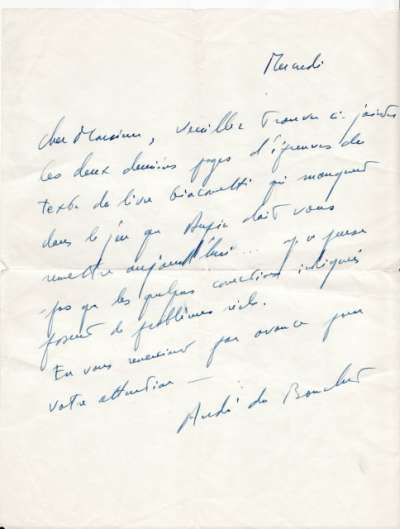 Mercredi
Cher Monsieur, veuillez trouver ci-jointes
les deux dernières pages d'épreuves du
texte du livre Giacometti qui manquent
dans le jeu que doit vous
remettre aujourd'hui... je ne pense
pas que les quelques corrections indiquées
posent de problèmes réels.
En vous remerciant par avance pour
votre attention —
André du Bouchet